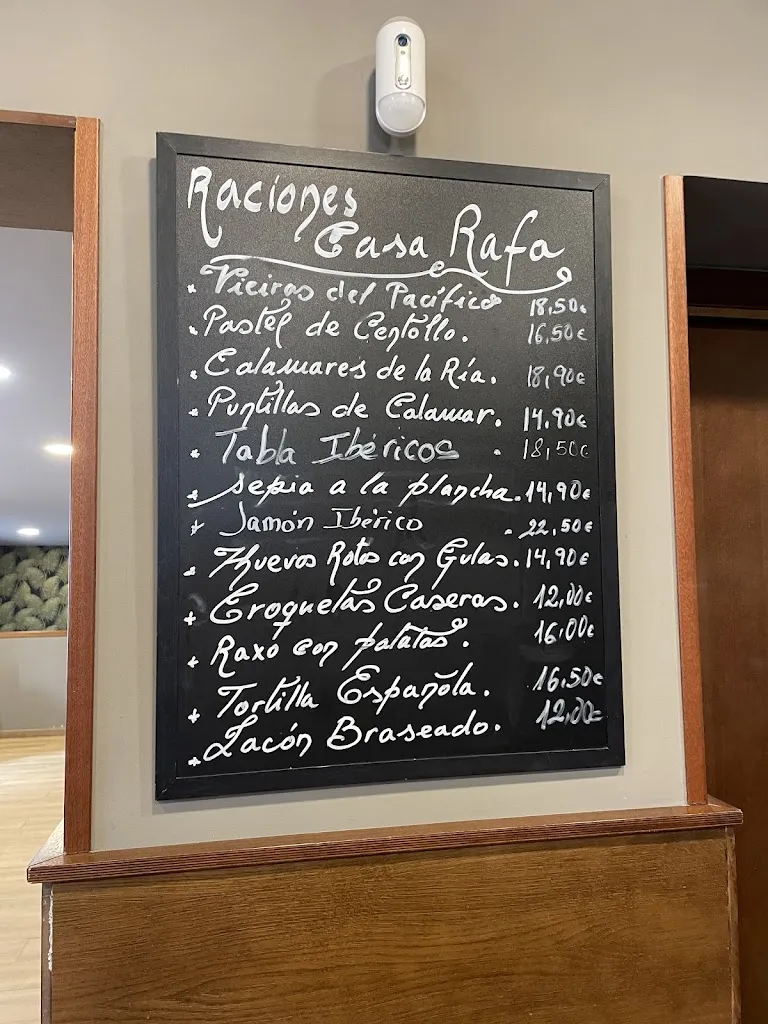 Raciones
Casa Rafa
Vieiras del Pacífico 18,50€
Pastel de Centollo. 16,50€
Calamares de la Ría. 18,90€
Puntillas de Calamar. 14.90€
Tabla Ibéricos . 18,50€
sepia a la plancha. 14,90€
Jamón Ibérico . 22,50€
Huevos Rotos con Gulas. 14,90€
Croquetas Caseras. 12,00€
Raxo con patatas. 16.00€
Tortilla Española. 16.50€
Lacón Braseado. 12,00€